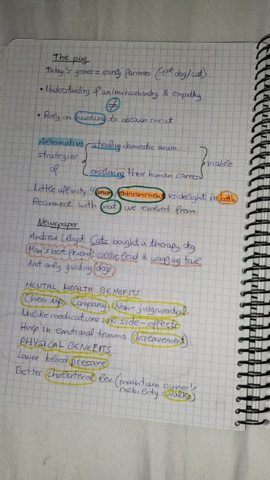 The pug
Today's genes = early farmer (1st dog/cat)
• Understanding of animal husbandry & empathy
≠
• Rely on hunting to obtain meat
Alternative stealing domestic anim.
strategies viable
of resolving their human careers
Little affinity environment vs delight in both
Reconnect with we evolved from
Newspaper
Andrew Lloyd Cats bought a therapy dog
Man's best friend: cocking head & wagging tail
Not only guiding dogs
MENTAL HEALTH BENEFITS
Cheer up Company Non-judgmental
Unlike medications: no side-effects
Help in emotional trauma (bereavement)
PHYSICAL BENEFITS
Lower blood pressure
Better cholesterol (maintain owner's
mobility: walks)